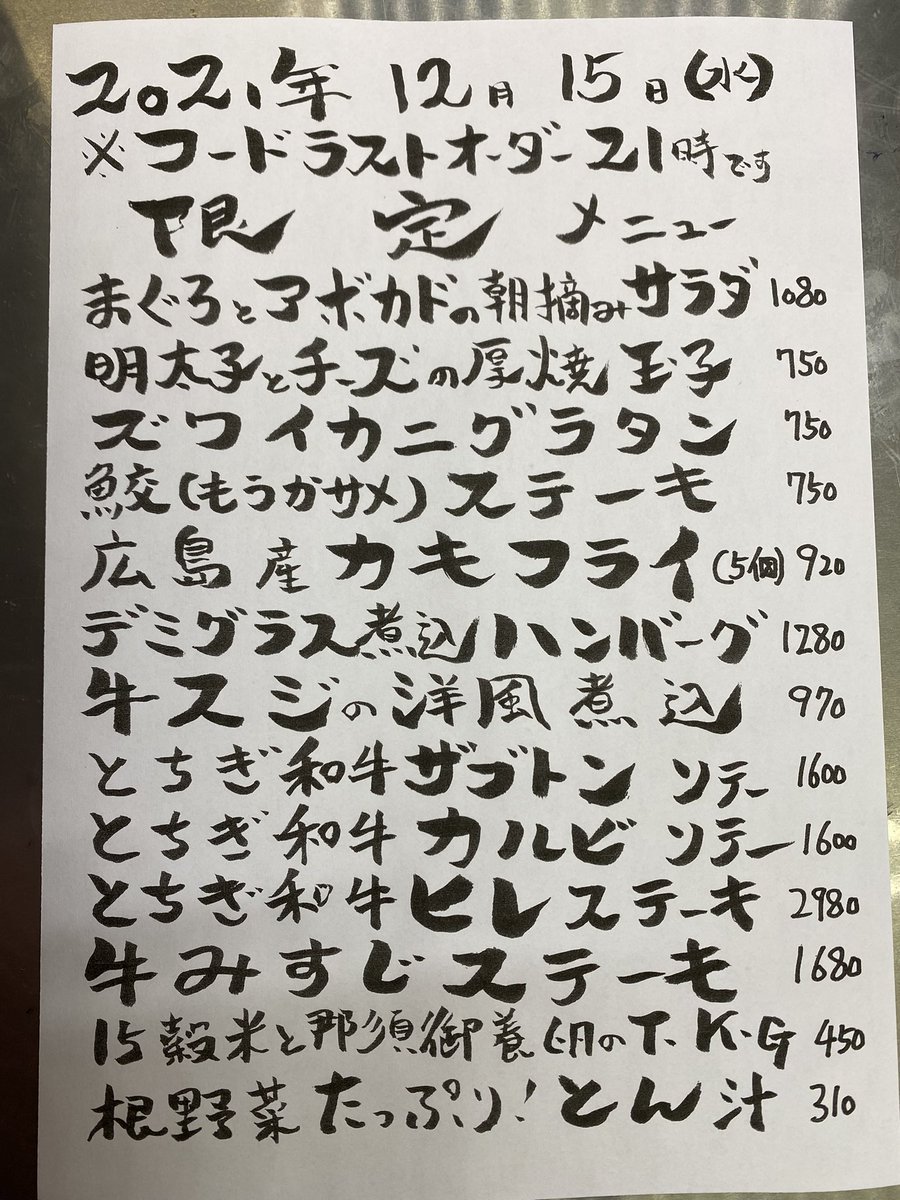 2021年 12月 15日(水)
※フードラストオーダー21時です
限定メニュー
まぐろとアボカドの朝摘みサラダ 1080
明太子とチーズの厚焼玉子 750
ズワイカニグラタン 750
鮫(もうかサメ)ステーキ 750
広島産カキフライ(5個) 920
デミグラス煮込ハンバーグ 1280
牛スジの洋風煮込 970
とちぎ和牛ザブトンソテー 1600
とちぎ和牛カルビソテー 1600
とちぎ和牛ヒレステーキ 2980
牛みすじステーキ 1680
15穀米と那須御養卵のT.K.G 450
根野菜たっぷり!とん汁 310